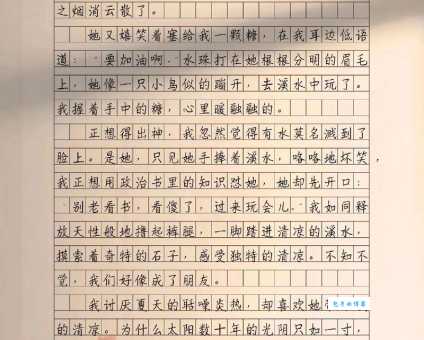 之烟消云散了。
她又嬉笑着塞给我一颗糖，在我耳边低语
道：“要加油啊.”水珠打在她根根分明的眉毛
上，她像一只小鸟似的蹦开，去溪水中玩了。
我握着手中的糖，心里暖融融的。
正想得出神，我忽然觉得有水莫名溅到了
脸上。是她，只见她手捧着溪水，咯咯地坏笑，
我正想用政治书里的知识怼她，她却先开口：
“别老看书，看傻了，过来玩会儿.”我如同释
放天性般地撸起裤腿，一脚踏进清凉的溪水，
摸索着奇特的石子，感受独特的清凉。不知不
觉，我们好像成了朋友。
我讨厌夏天的聒噪炎热，却喜欢她
的清凉。为什么太阳数十年的光阴只如一寸，